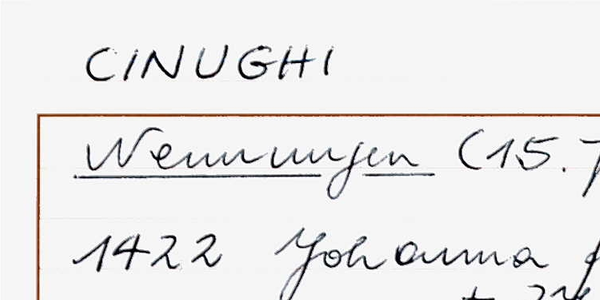 CINUGHI
Nennungen (15.
1422 Johanna